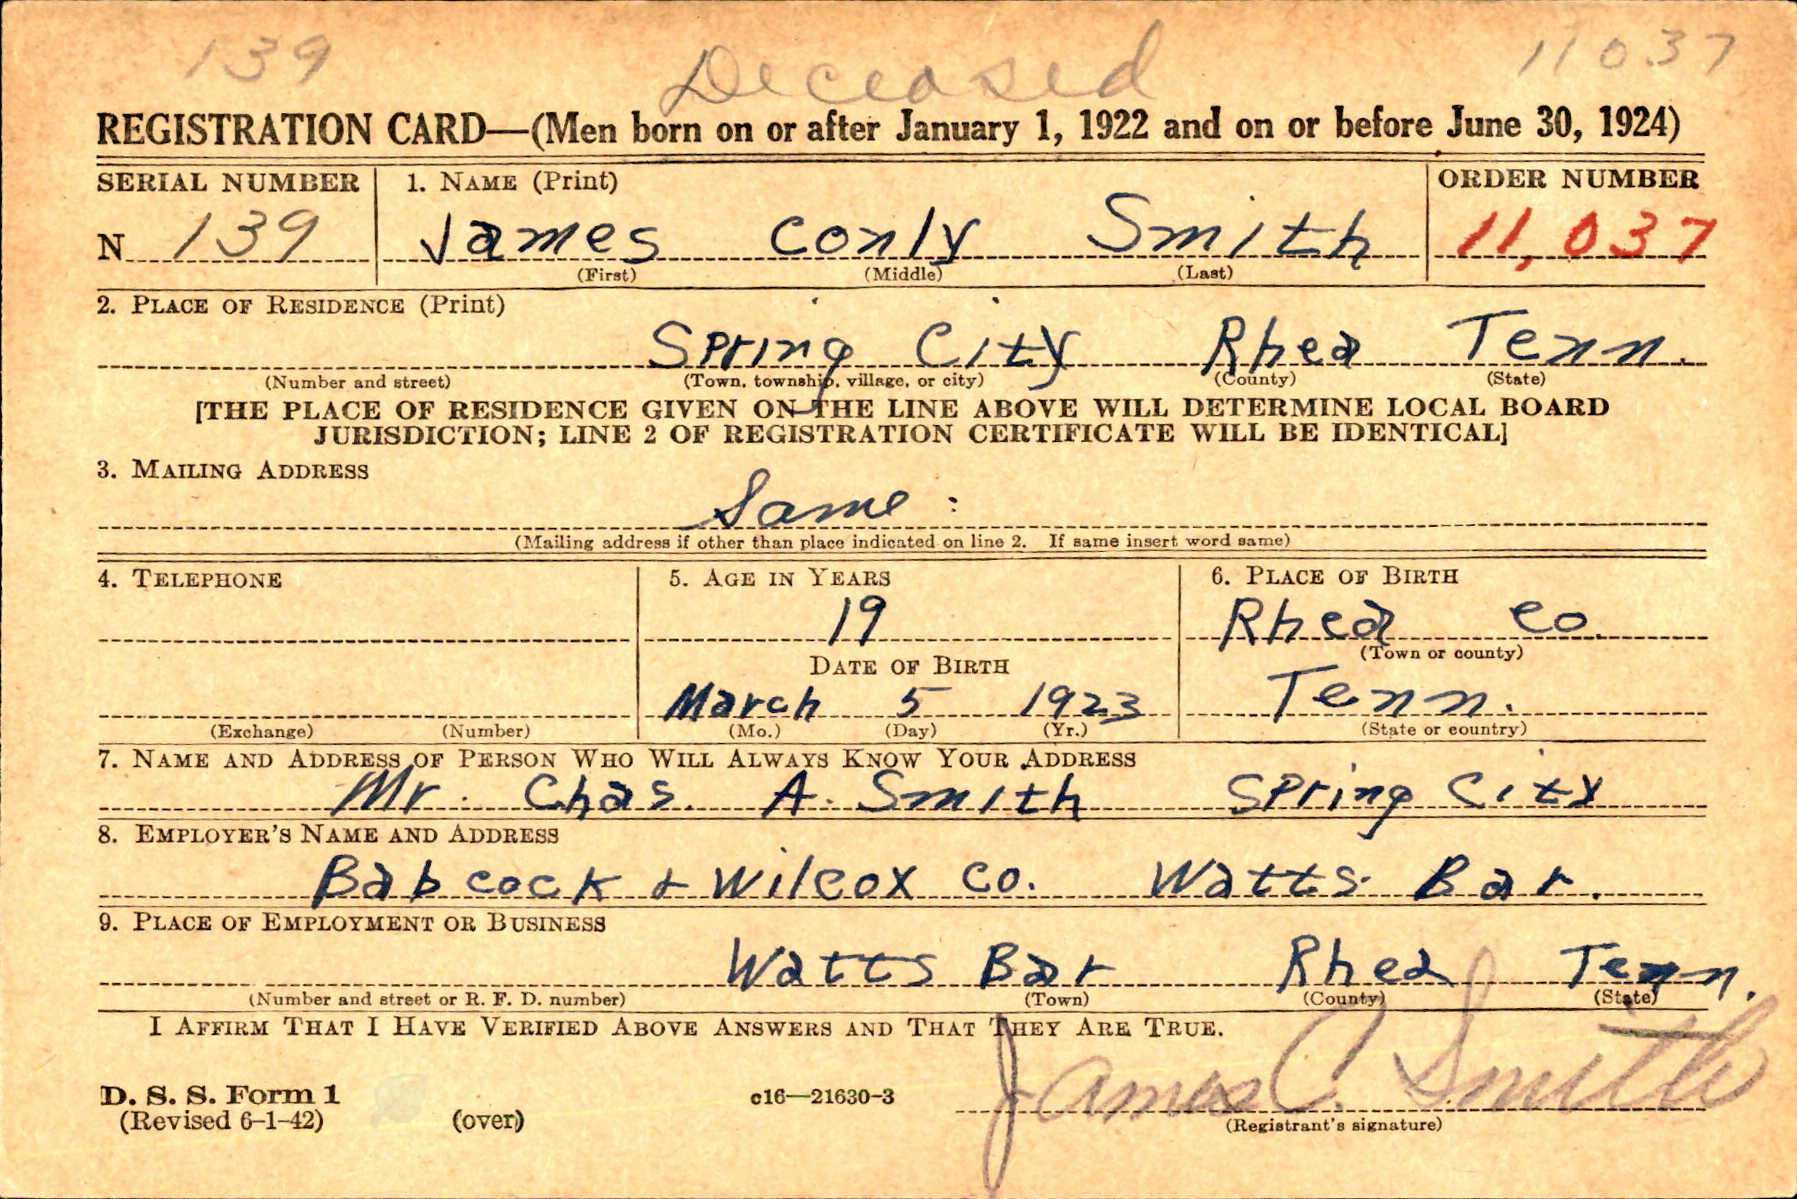 139 Deceased 11037
REGISTRATION CARD—(Men born on or after January 1, 1922 and on or before June 30, 1924)
SERIAL NUMBER 1. NAME (Print) ORDER NUMBER
N 139 James Conly Smith 11,037
(First) (Middle) (Last)
2. PLACE OF RESIDENCE (Print)
Spring City Rhea Tenn.
(Number and street) (Town, township, village, or city) (County) (State)
[THE PLACE OF RESIDENCE GIVEN ON THE LINE ABOVE WILL DETERMINE LOCAL BOARD
JURISDICTION; LINE 2 OF REGISTRATION CERTIFICATE WILL BE IDENTICAL]
3. MAILING ADDRESS
Same:
(Mailing address if other than place indicated on line 2. If same insert word same)
4. TELEPHONE 5. AGE IN YEARS 6. PLACE OF BIRTH
19 Rhea Co.
(Town or county)
DATE OF BIRTH
March 5 1923 Tenn.
(Exchange) (Number) (Mo.) (Day) (Yr.) (State or country)
7. NAME AND ADDRESS OF PERSON WHO WILL ALWAYS KNOW YOUR ADDRESS
Mr. Chas. A. Smith Spring City
8. EMPLOYER'S NAME AND ADDRESS
Babcock & Wilcox Co. Watts Bar.
9. PLACE OF EMPLOYMENT OR BUSINESS
Watts Bar Rhea Tenn.
(Number and street or R. F. D. number) (Town) (County) (State)
I AFFIRM THAT I HAVE VERIFIED ABOVE ANSWERS AND THAT THEY ARE TRUE.
James C. Smith
D. S. S. Form 1
(Revised 6-1-42) (over) c16—21630-3 (Registrant's signature)